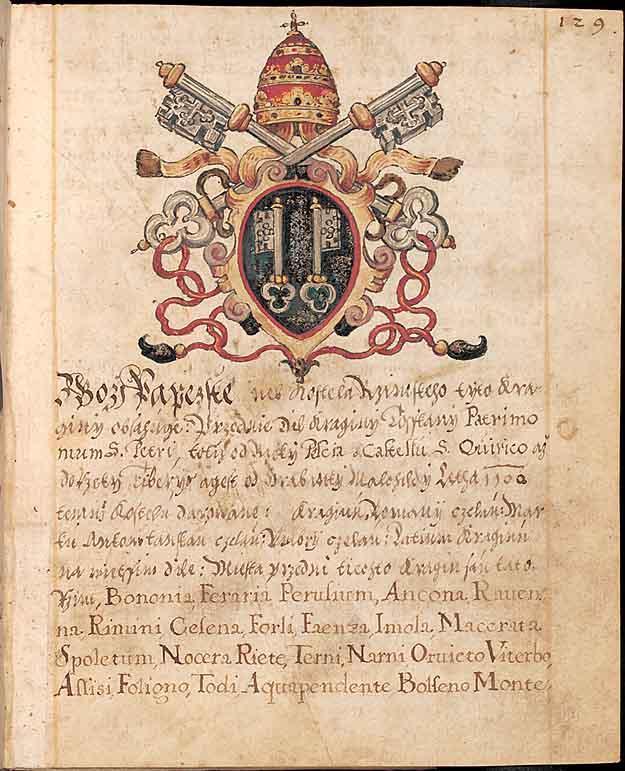 129.
Zboží Papežské neb Kostela Rzimského tyto Kra-
giny obsahuge: Przednie dil Kraginy Tosskany Patrimo
nium S. Petri, totiž od Rzeky Pescia a Castellu S. Quirico až
do Rzeky Tiberys agest od Hrabinky Mathildy Letha 1100
temuž Kostelu darowané: Kraginu Romany czelau: Mar-
ku Ankonitanskau czelau: Umbry czelau: Latium Kraginu
na wietssim dile: Miesta przedni tiechto Kragin sau tato.
Rzim, Bononia, Feraria Perusium, Ancona, Raven-
na. Rimini Cesena, Forli, Faenza, Imola, Macerata
Spoletum, Nocera Riete, Terni, Narni Orvieto Viterbo,
Assisi, Foligno, Todi Aquapendente Bolseno Monte,